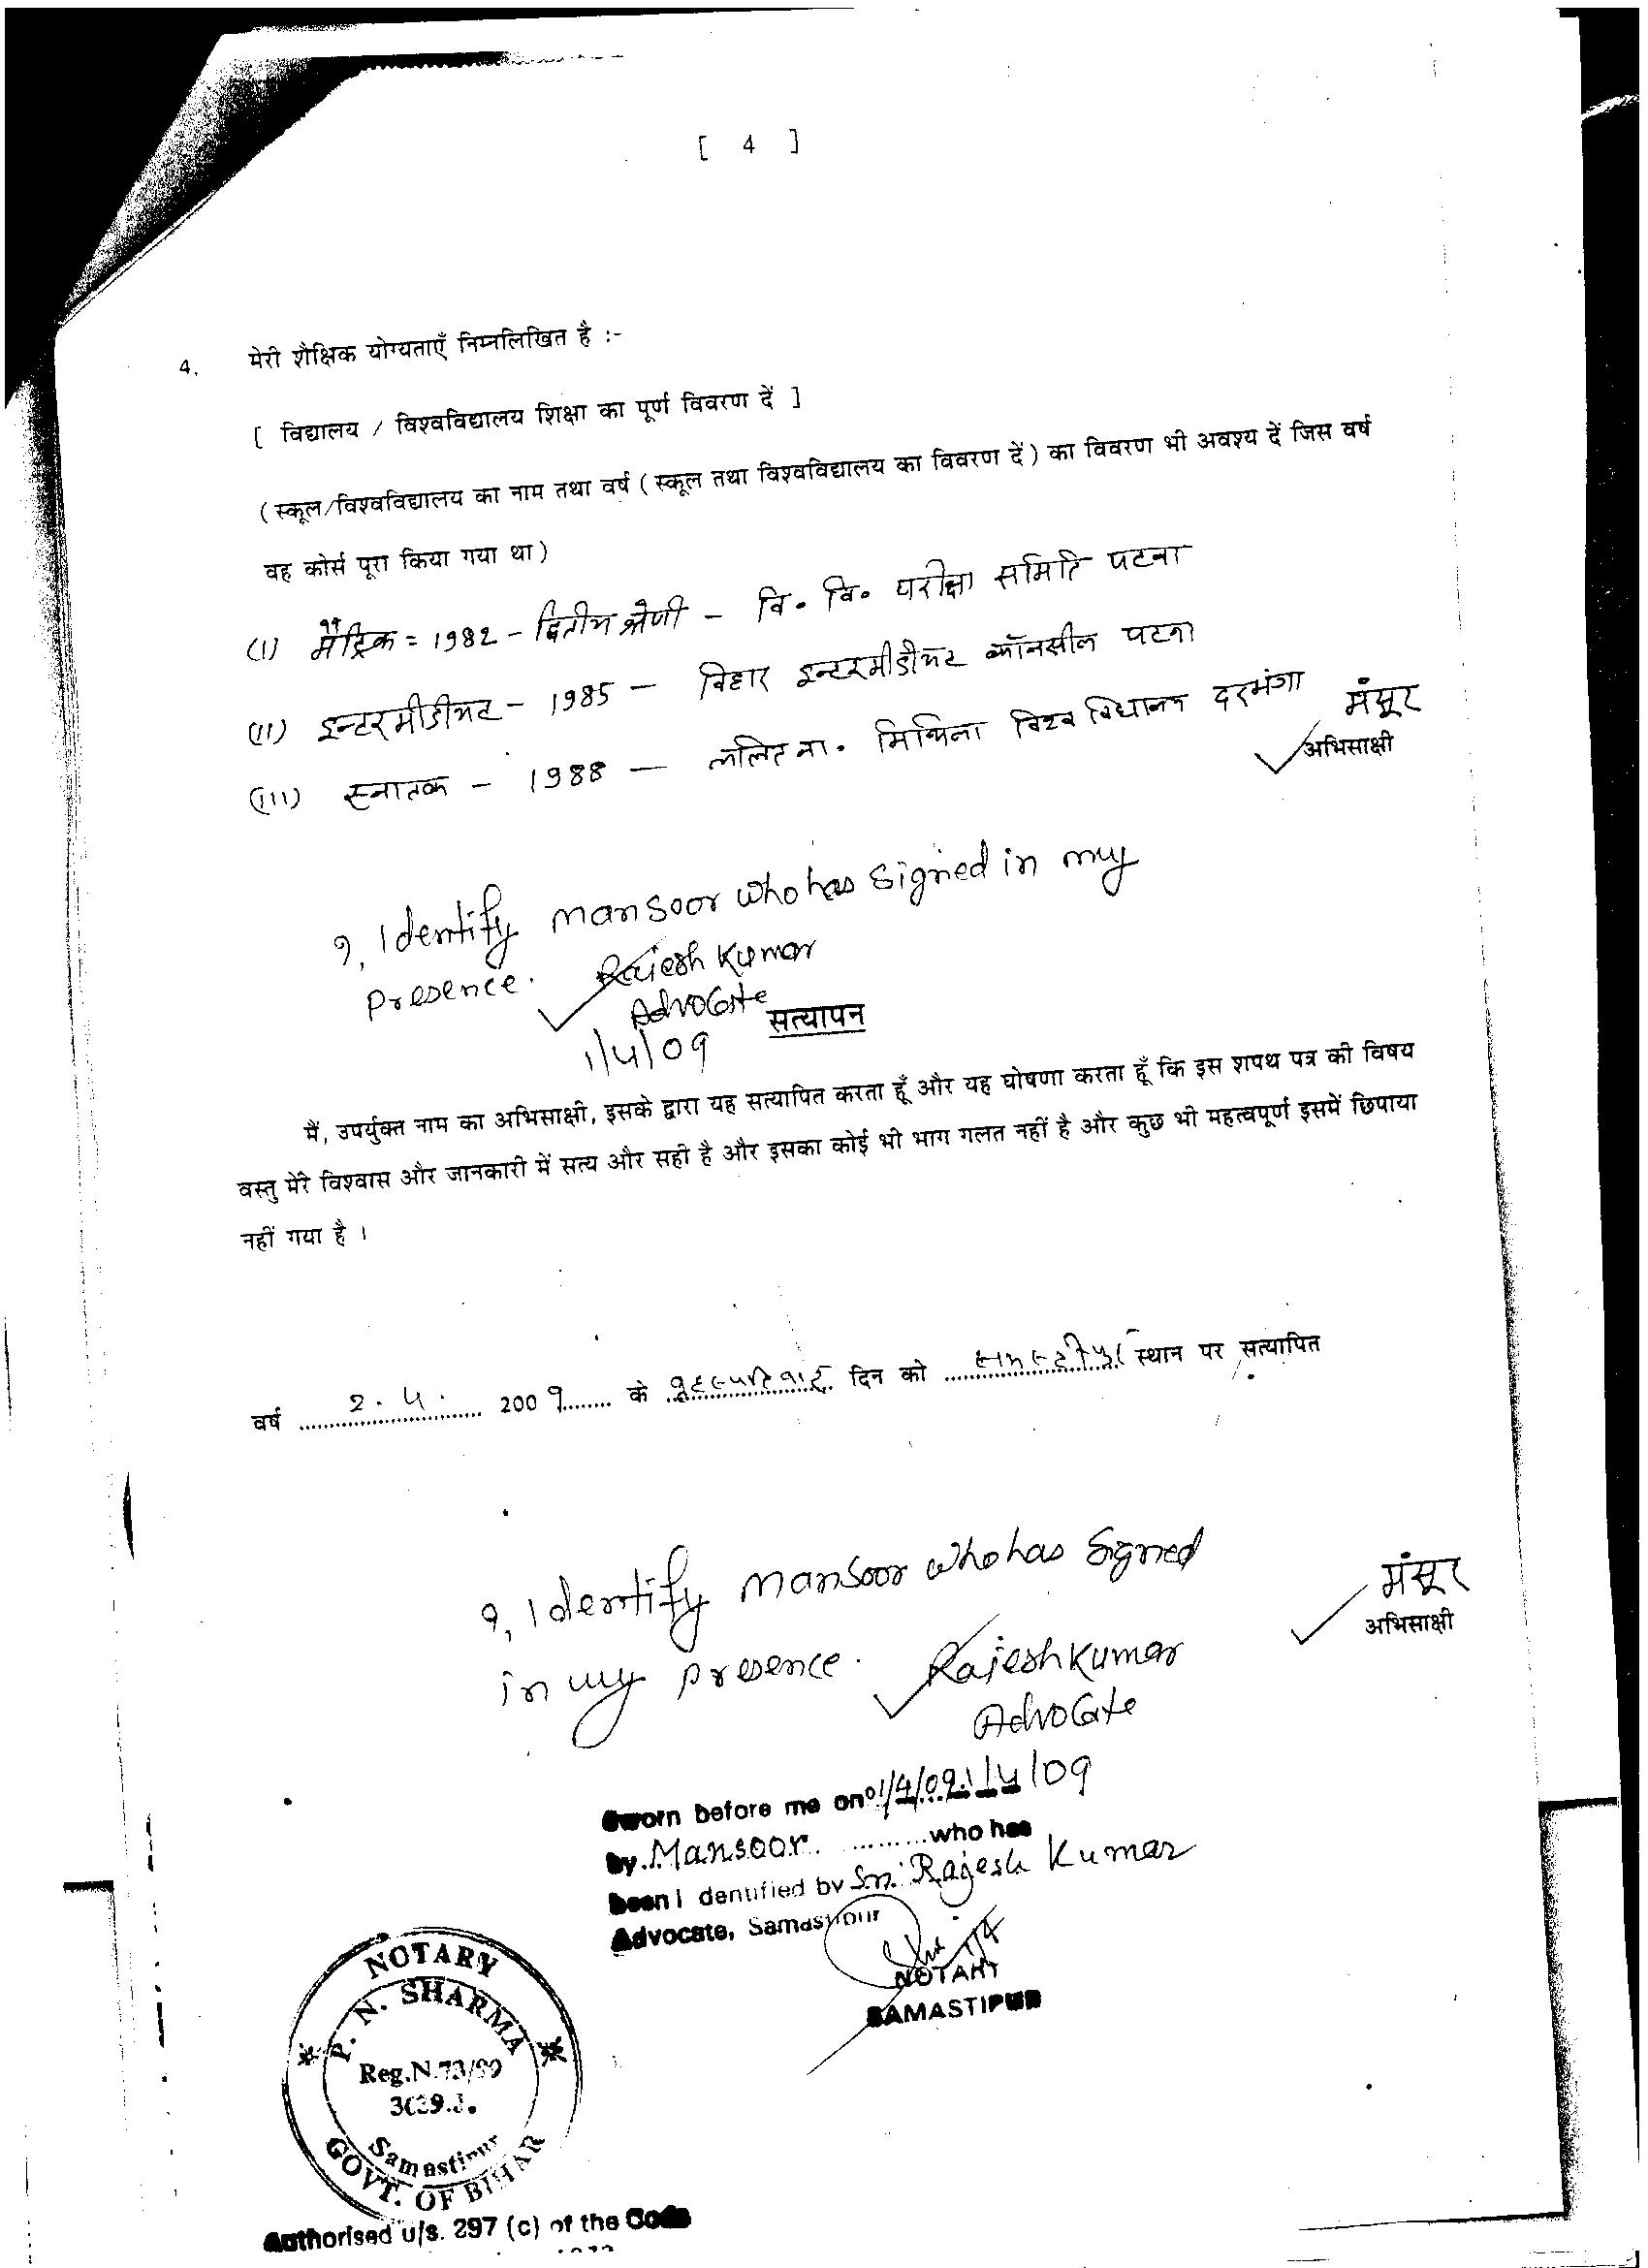 [ 4 ]
4. मेरी शैक्षिक योग्यताएँ निम्नलिखित है :-
[ विद्यालय / विश्वविद्यालय शिक्षा का पूर्ण विवरण दें ]
(स्कूल/विश्वविद्यालय का नाम तथा वर्ष (स्कूल तथा विश्वविद्यालय का विवरण दें) का विवरण भी अवश्य दें जिस वर्ष
वह कोर्स पूरा किया गया था)
(I) मैट्रिक = 1982 - द्वितीय श्रेणी - वि. वि. परीक्षा समिति पटना
(II) इन्टरमीडीयट - 1985 - विहार इन्टरमीडीयट कॉनसील पटना
(III) स्नातक - 1988 - ललित ना. मिथिला विश्व विधालय दरभंगा
मंसूर
अभिसाक्षी
I, Identify mansoor who has signed in my
presence. Rajesh Kumar
Advocate
1/4/09
सत्यापन
मैं, उपर्युक्त नाम का अभिसाक्षी, इसके द्वारा यह सत्यापित करता हूँ और यह घोषणा करता हूँ कि इस शपथ पत्र की विषय
वस्तु मेरे विश्वास और जानकारी में सत्य और सही है और इसका कोई भी भाग गलत नहीं है और कुछ भी महत्वपूर्ण इसमें छिपाया
नहीं गया है ।
वर्ष 2.4. 2009 के वृहस्पतिवार दिन को समस्तीपुर स्थान पर सत्यापित
मंसूर
अभिसाक्षी
I, Identify mansoor who has signed
in my presence. Rajesh Kumar
Advocate
1/4/09
Sworn before me on 01/4/09
by Mansoor who has
been identified by Sri Rajesh Kumar
Advocate, Samastipur
NOTARY
SAMASTIPUR
NOTARY
P. N. SHARMA
Reg.N.73/
Samastipur
GOVT. OF BIHAR
Authorised u/s. 297 (c) of the Code